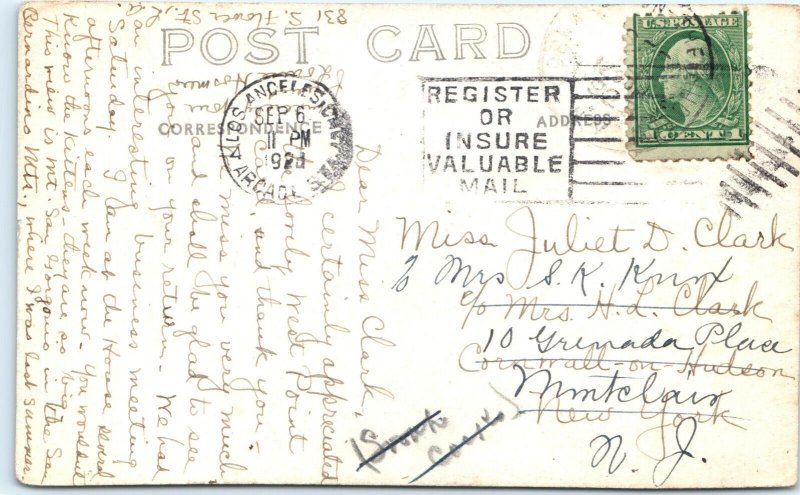 POST CARD
CORRESPONDENCE
ADDRESS
U.S. POSTAGE
1 CENT 1
LOS ANGELES
SEP 6
11 PM
ARCADE
REGISTER
OR
INSURE
VALUABLE
MAIL
831 S. Flower St., L.
Dear Miss Clark,
I certainly appreciated
lovely West Point
and thank you -
miss you very much
and shall be glad to see
you on your return. We had
an interesting business meeting
Saturday. I am at the House several
afternoons each week now. You wouldn't
know the kittens - they are so big.
This view is Mt. San Gorgonio in the San
Bernardino Mts, where I was last summer
Miss Juliet D. Clark
% Mrs S. K. Knox
c/o Mrs. H. L. Clark
10 Grenada Place
Cornwall-on-Hudson
Montclair
New York
N. J.